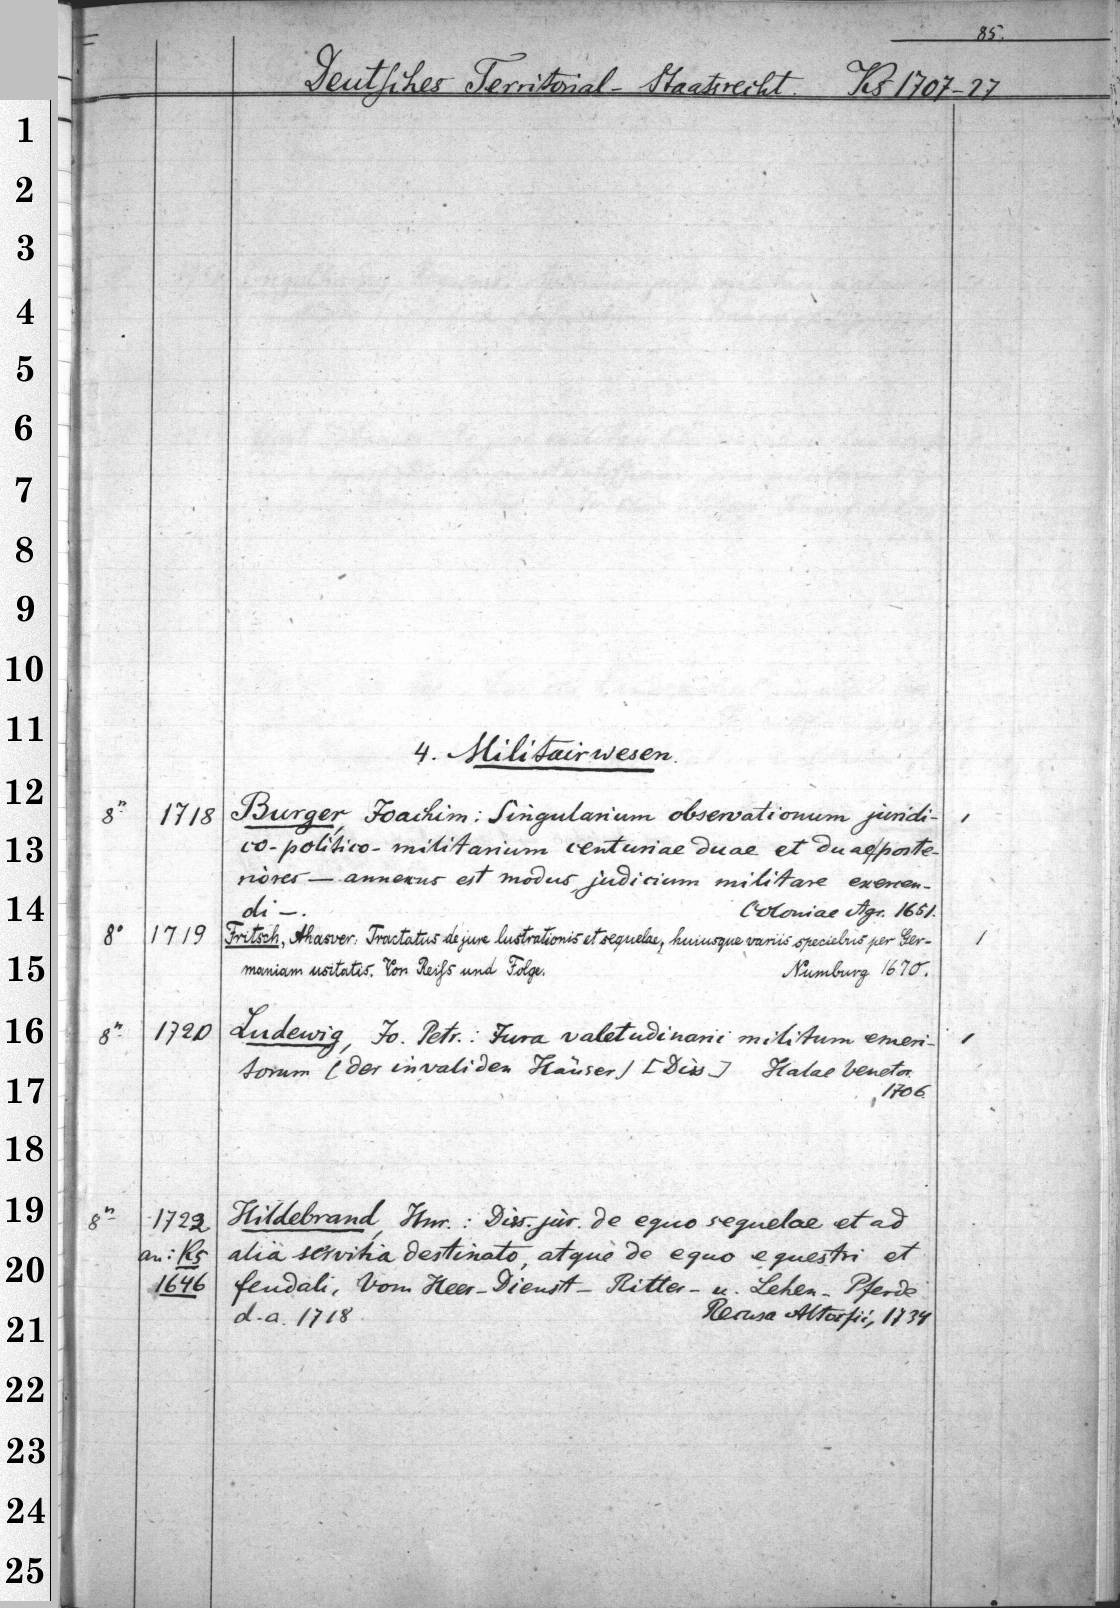 85.
Deutsches Territorial-Staatsrecht. Ks 1707-27
1
2
3
4
5
6
7
8
9
10
11
4. Militairwesen.
12
8° 1718 Burger, Joachim: Singularium observationum juridi- 1
13
co-politico-militarium centuriae duae et duae poste-
riores — annexus est modus judicium militare exercen-
14
di —. Coloniae Agr. 1651.
8° 1719 Fritsch, Ahasver: Tractatus de jure lustrationis et sequelae, huiusque variis speciebus per Ger- 1
15
maniam usitatis. Von Reiss und Folge. Numburg 1670.
16
8° 1720 Ludewig, Jo. Petr.: Jura valetudinarii militum emeri- 1
torum (der invaliden Häuser) [Diss] Halae Venetor.
17
1706
18
19
8° 1722 Hildebrand, Hnr.: Diss. jur. de equo sequelae et ad
an: Ks alia servitia destinato, atque de equo equestri et
20
1646 feudali, Vom Heer-Dienst-Ritter- u. Lehen-Pferde
d. a. 1718 Recusa Altorfii, 1734
21
22
23
24
25